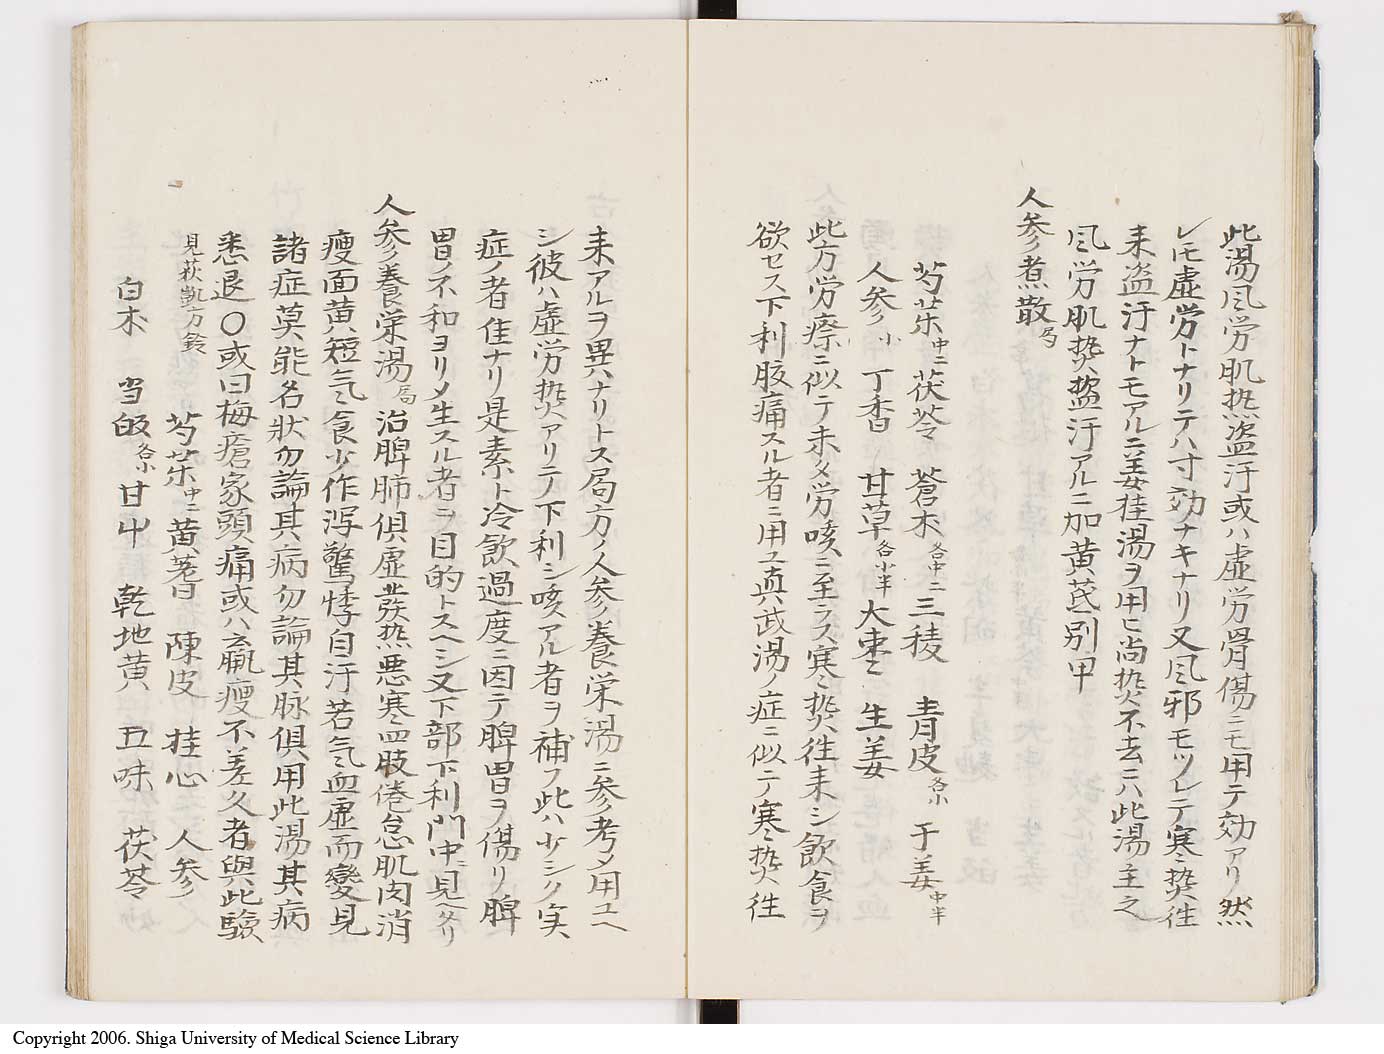 此湯风労肌热盗汗或ハ虚労骨傷ニモ用テ効アリ然
レモ虚労トナリテハ寸効ナキナリ又风邪モツレテ寒熱往
来盗汗ナトモアルニ姜桂湯ヲ用ヒ尚熱不去ニハ此湯主之
风労肌熱盗汗アルニ加黄芪別甲
人参煮散局
芍薬中ニ茯苓 蒼朮各中ニ三稜 青皮各小 干姜中半
人参小 丁香 甘草各小半大棗 生姜
此方労瘵ニ似テ未タ労咳ニ至ラス寒熱往来シ飲食ヲ
欲セス下利腹痛スル者ニ用ユ真武湯ノ症ニ似テ寒熱往
来アルヲ異ナリトス局方ノ人参養栄湯ニ参考メ用ユヘ
シ彼ハ虚労熱アリテ下利シ咳アル者ヲ補フ此ハ少シク実
症ノ者佳ナリ是素ト冷飲過度ニ因テ脾胃ヲ傷リ脾
胃ノ不和ヨリメ生スル者ヲ目的トスヘシ又下部下利門中ニ見タリ
人参養栄湯局治脾肺俱虚発热悪寒四肢倦怠肌肉消
瘦面黄短气食少作泻驚悸自汗若气血虚而變見
諸症莫能名狀勿論其病勿論其脉俱用此湯其病
悉退〇或曰梅瘡家頭痛或ハ羸瘦不差久者與此驗
見萩凱方鈴
芍薬中ニ黄芪 陳皮 桂心 人参
白朮 当皈各小甘中 乾地黄 五味 茯苓